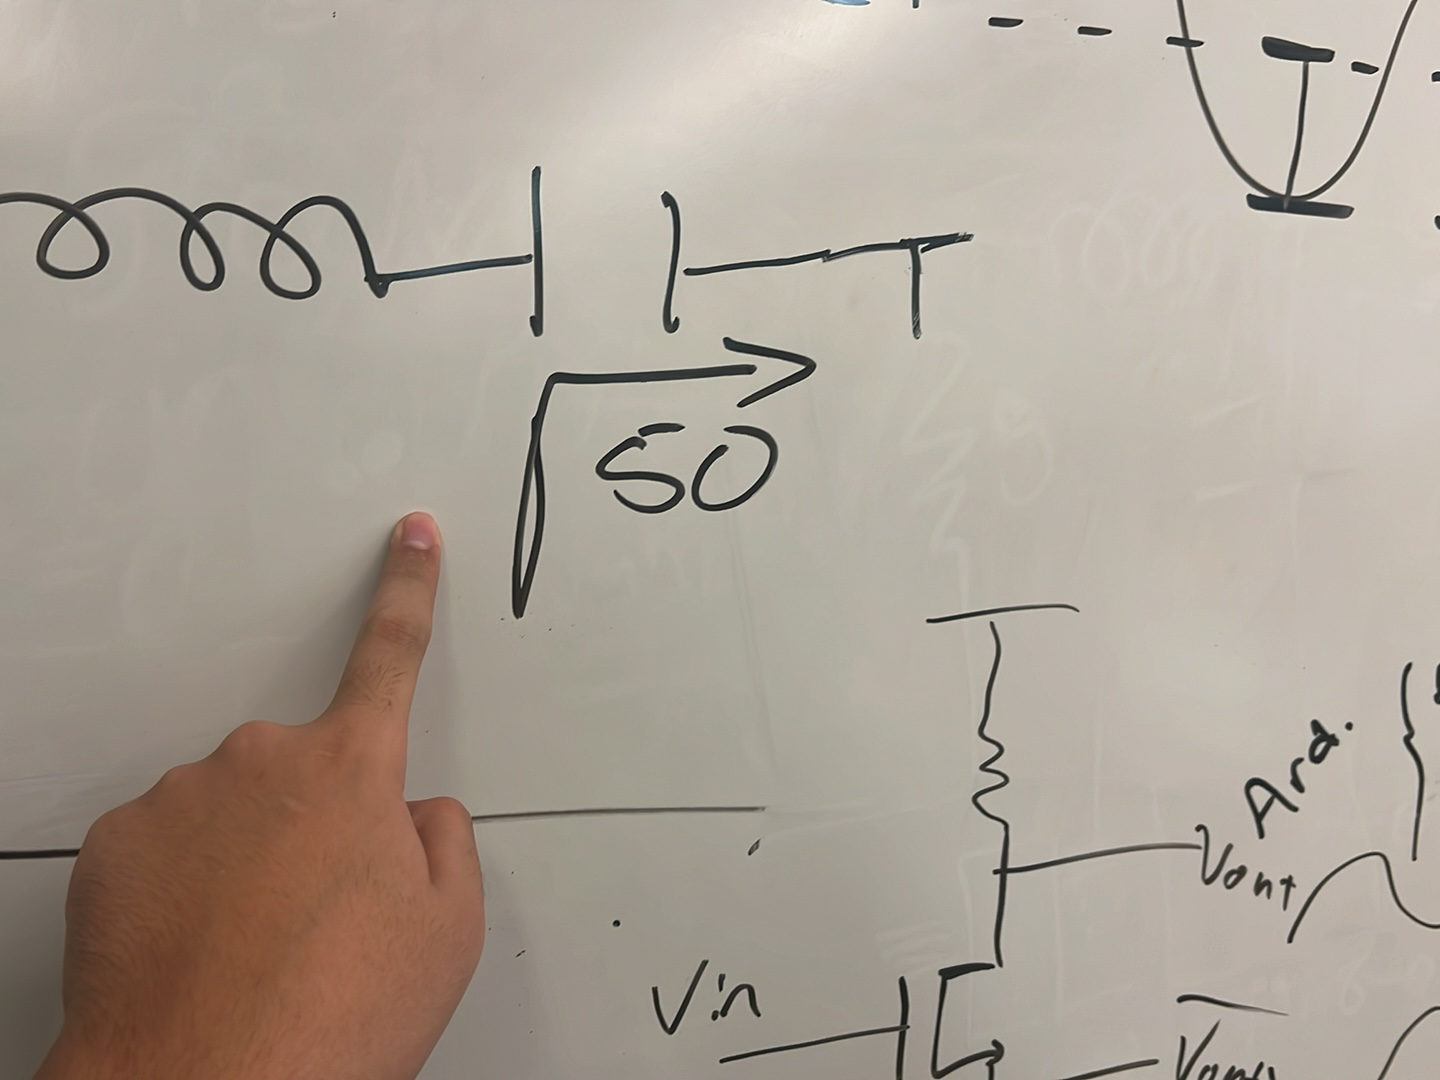 50
Ard.
Vout
Vin